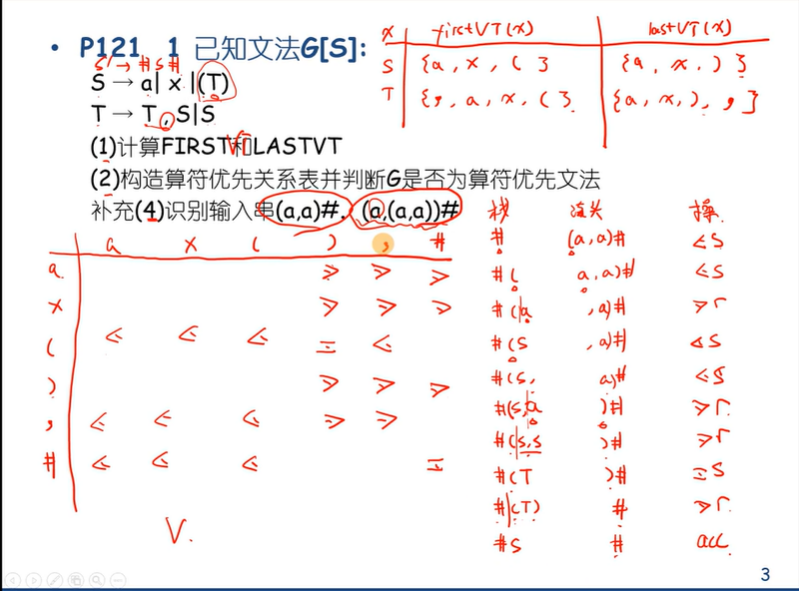 • P121 1 已知文法G[S]:
S' → #S#
S → a| x |(T)
T → T,S|S
(1)计算FIRSTVT和LASTVT
(2)构造算符优先关系表并判断G是否为算符优先文法
补充(4)识别输入串(a,a)#. (a,(a,a))#
X firstVT(X) lastVT(X)
S {a, x, ( } {a, x, ) }
T { , , a, x, ( } {a, x, ), , }
a x ( ) , #
a ⋗ ⋗ ⋗
x ⋗ ⋗ ⋗
( ⋖ ⋖ ⋖ = ⋖
) ⋗ ⋗ ⋗
, ⋖ ⋖ ⋖ ⋗ ⋗
# ⋖ ⋖ ⋖ =
V.
栈
# (a,a)# ⋖S
#( a,a)# ⋖S
#(a ,a)# ⋗r
#(S ,a)# ⋖S
#(S, a)# ⋖S
#(S,a )# ⋗r
#(S,S )# ⋗r
#(T )# =S
#(T) # ⋗r
#S # acc
3